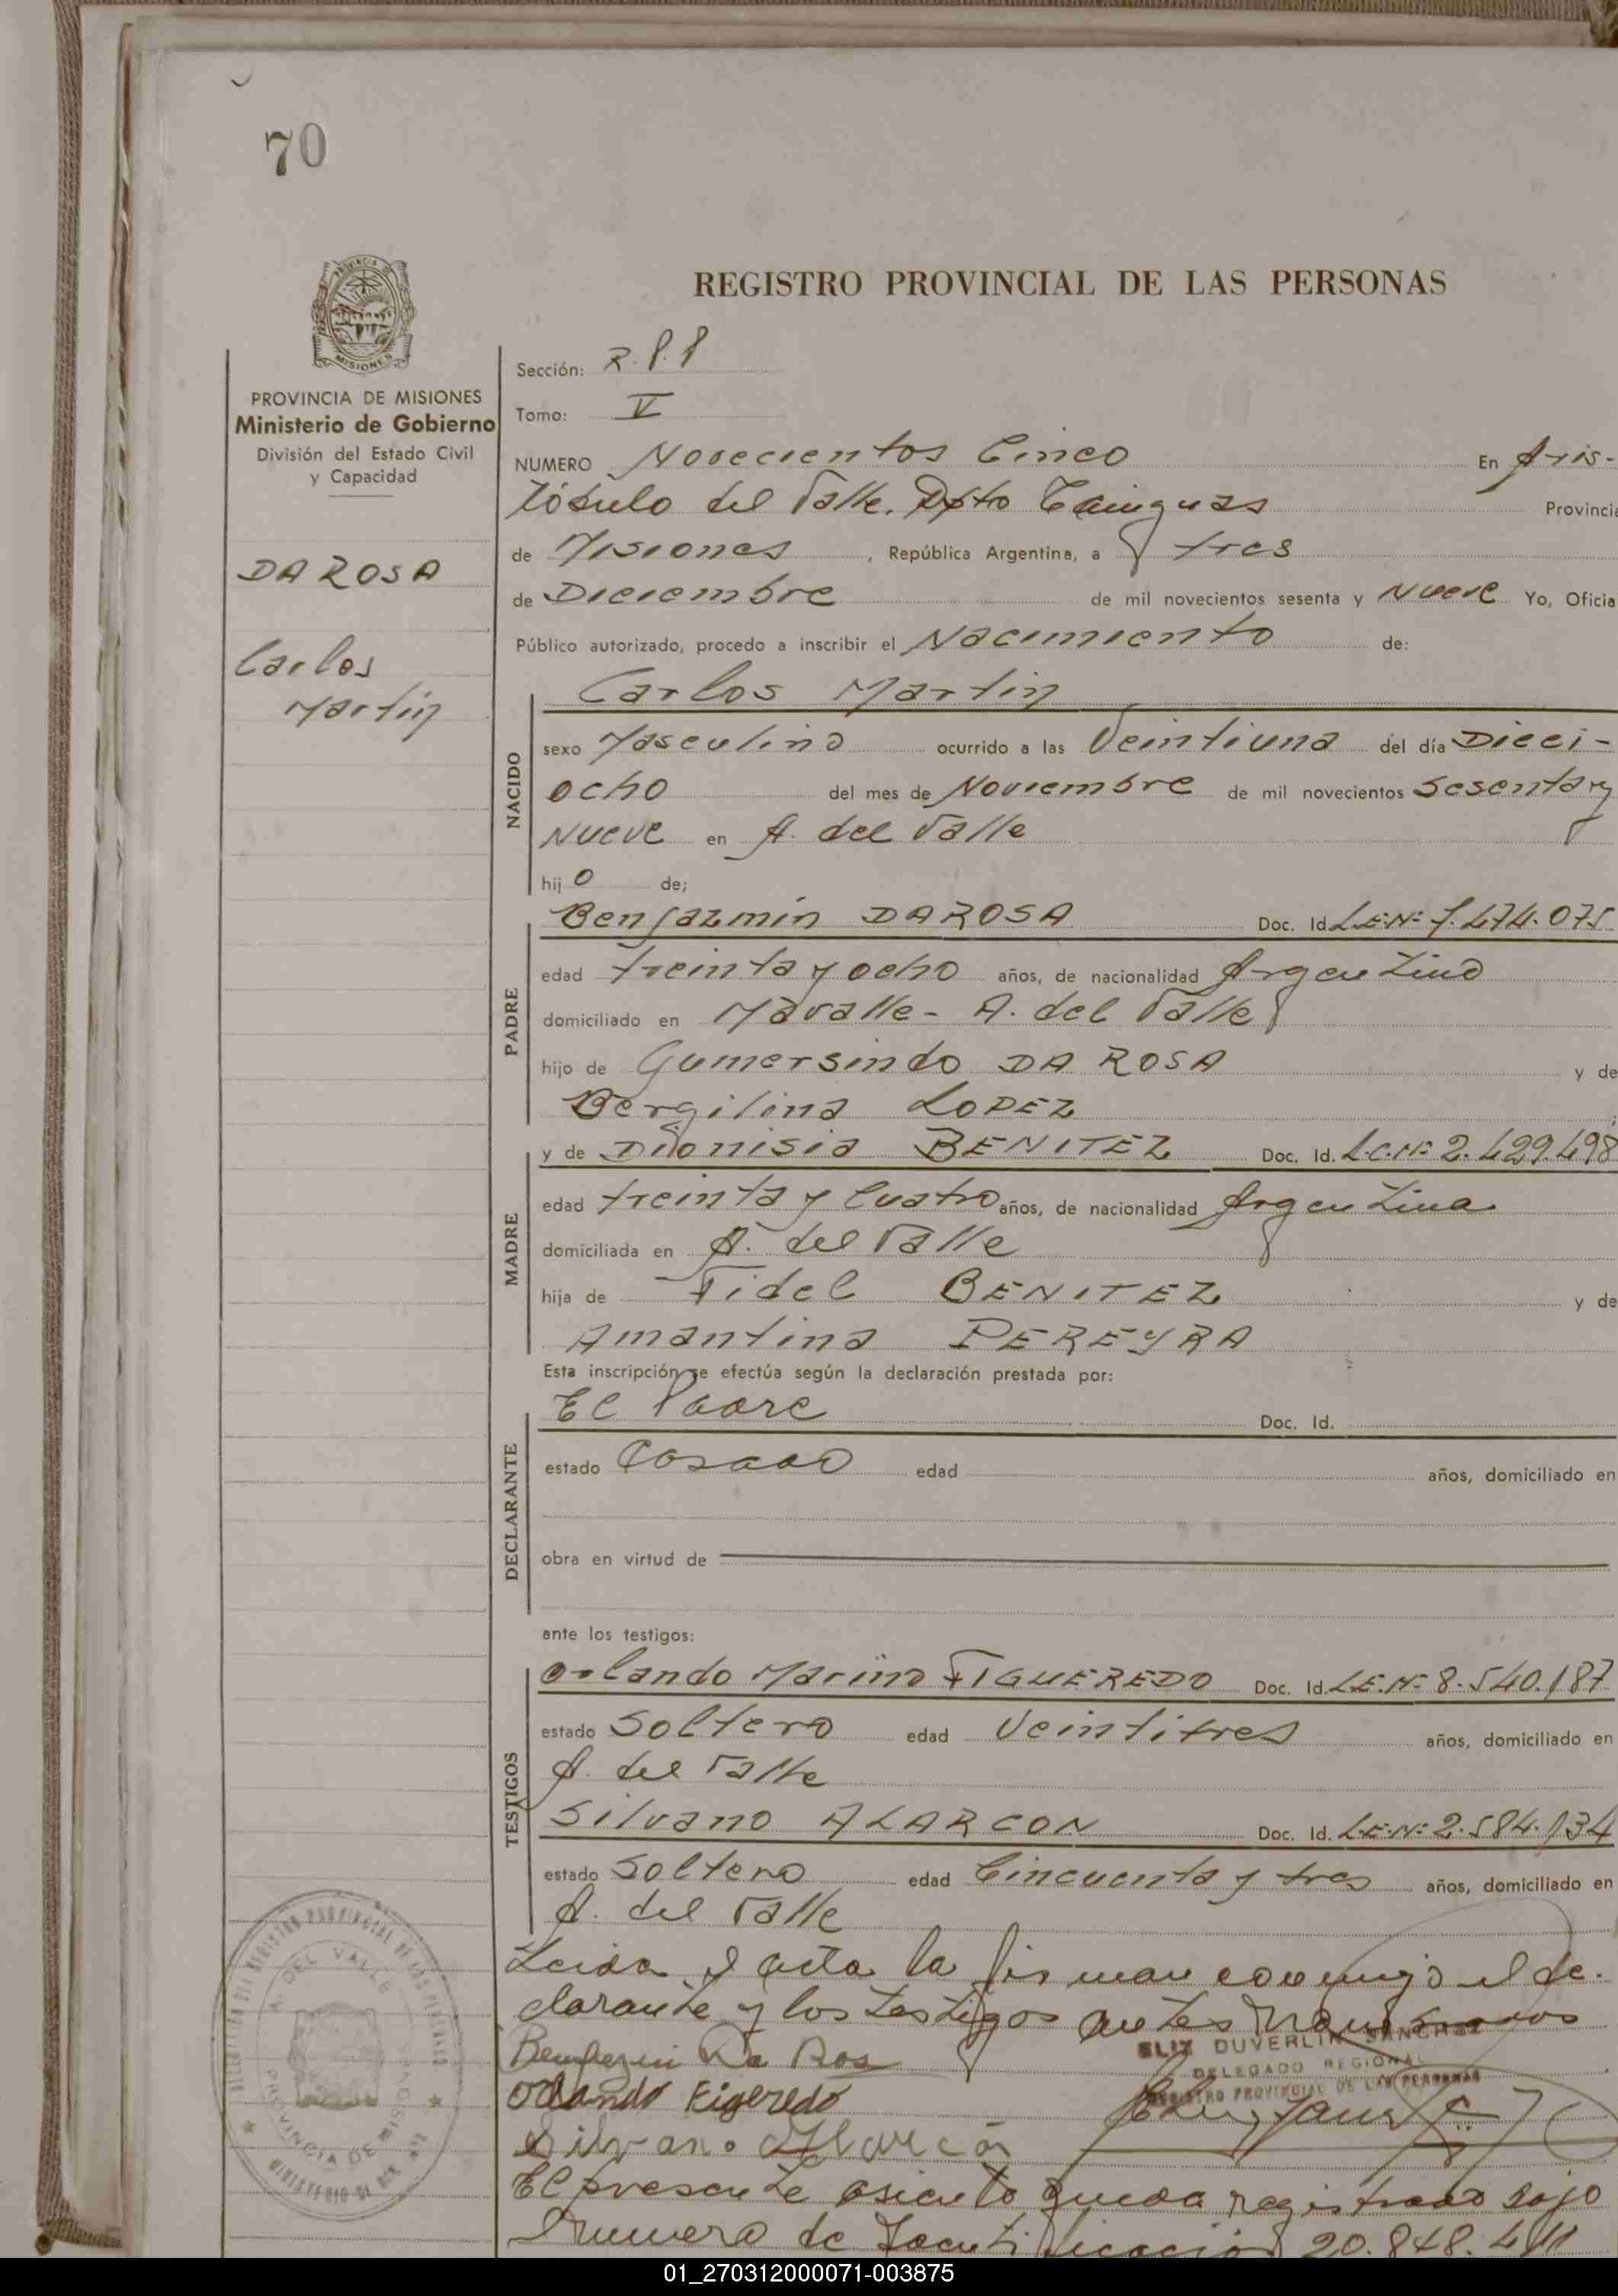 70
REGISTRO PROVINCIAL DE LAS PERSONAS
PROVINCIA DE MISIONES
Ministerio de Gobierno
División del Estado Civil
y Capacidad
DA ROSA
Carlos
Martín
Sección: R.P.P
Tomo: V
NUMERO Novecientos Cinco En Aris-
tóbulo del Valle. Dpto Cainguas Provincia
de Misiones, República Argentina, a tres
de Diciembre de mil novecientos sesenta y Nueve Yo, Oficia
Público autorizado, procedo a inscribir el Nacimiento de:
NACIDO
Carlos Martin
sexo Masculino ocurrido a las Veintiuna del día Dieci-
ocho del mes de Noviembre de mil novecientos Sesenta y
Nueve en A. del Valle
hijo de;
PADRE
Benjazmín DA ROSA Doc. Id. L.E.Nº 7.474.075
edad treinta y ocho años, de nacionalidad Argentino
domiciliado en Mavalle - A. del Valle
hijo de Gumersindo DA ROSA y de
Bergilina LOPEZ
MADRE
y de Dionisia BENITEZ Doc. Id. L.C.Nº 2.429.498
edad treinta y Cuatro años, de nacionalidad Argentina
domiciliada en A. del Valle
hija de Fidel BENITEZ y de
Amantina PEREYRA
Esta inscripción se efectúa según la declaración prestada por:
DECLARANTE
El Padre Doc. Id.
estado Casado edad años, domiciliado en
obra en virtud de
ante los testigos:
TESTIGOS
Orlando Marino FIGUEREDO Doc. Id. L.E.Nº 8.540.187
estado Soltero edad Veintitres años, domiciliado en
A. del Valle
Silvano ALARCON Doc. Id. L.E.Nº 2.584.134
estado Soltero edad Cincuenta y tres años, domiciliado en
A. del Valle
Leida el acta la firman conmigo el de-
clarante y los testigos antes
Benjazmin Da Rosa
DUVERLIN SANCHEZ
DELEGADO REGIONAL
REGISTRO PROVINCIAL DE LAS PERSONAS
Orlando Figeredo
Silvano Alarcón
A. DEL VALLE
PROVINCIA DE MISIONES
El presente asiento queda registrado bajo
Numero de Identificación 20.848.411
01_270312000071-003875